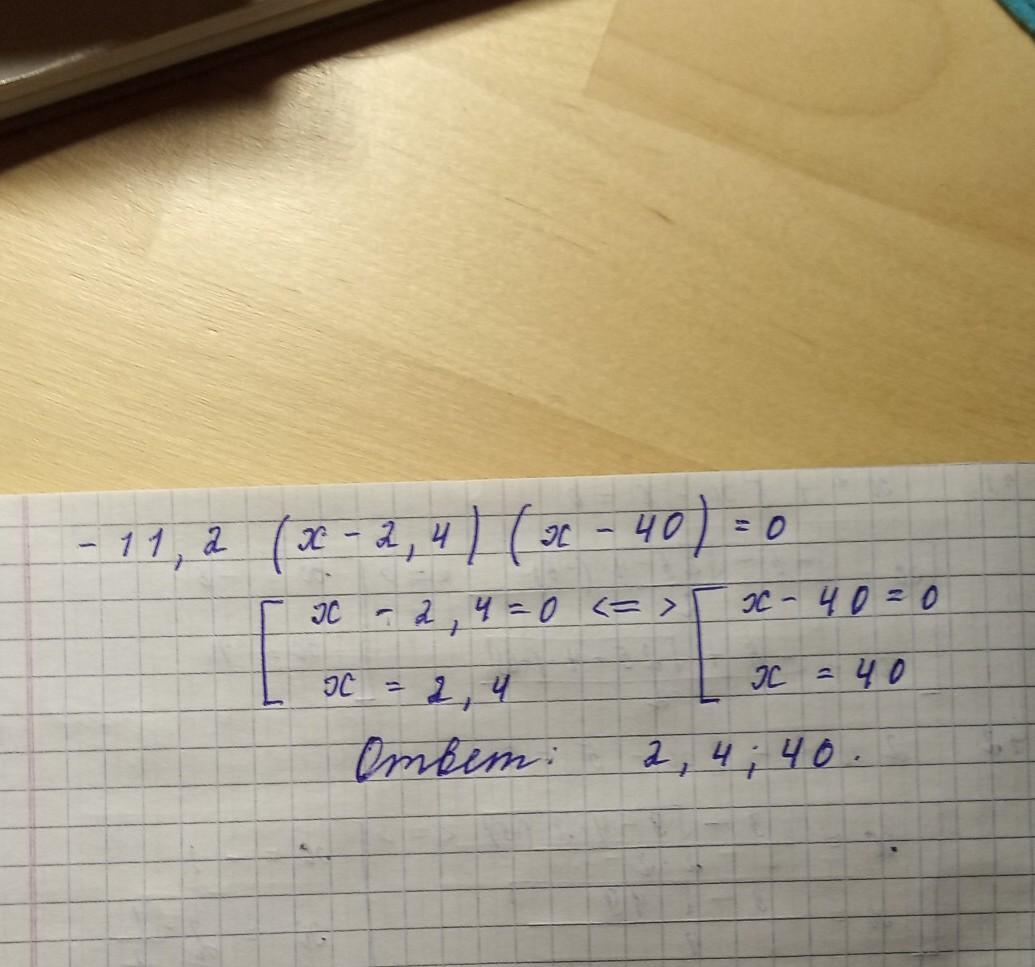 -11,2 (x-2,4) (x-40)=0
[ x-2,4=0 <=> [ x-40=0
x=2,4 x=40
Ответ: 2,4; 40.